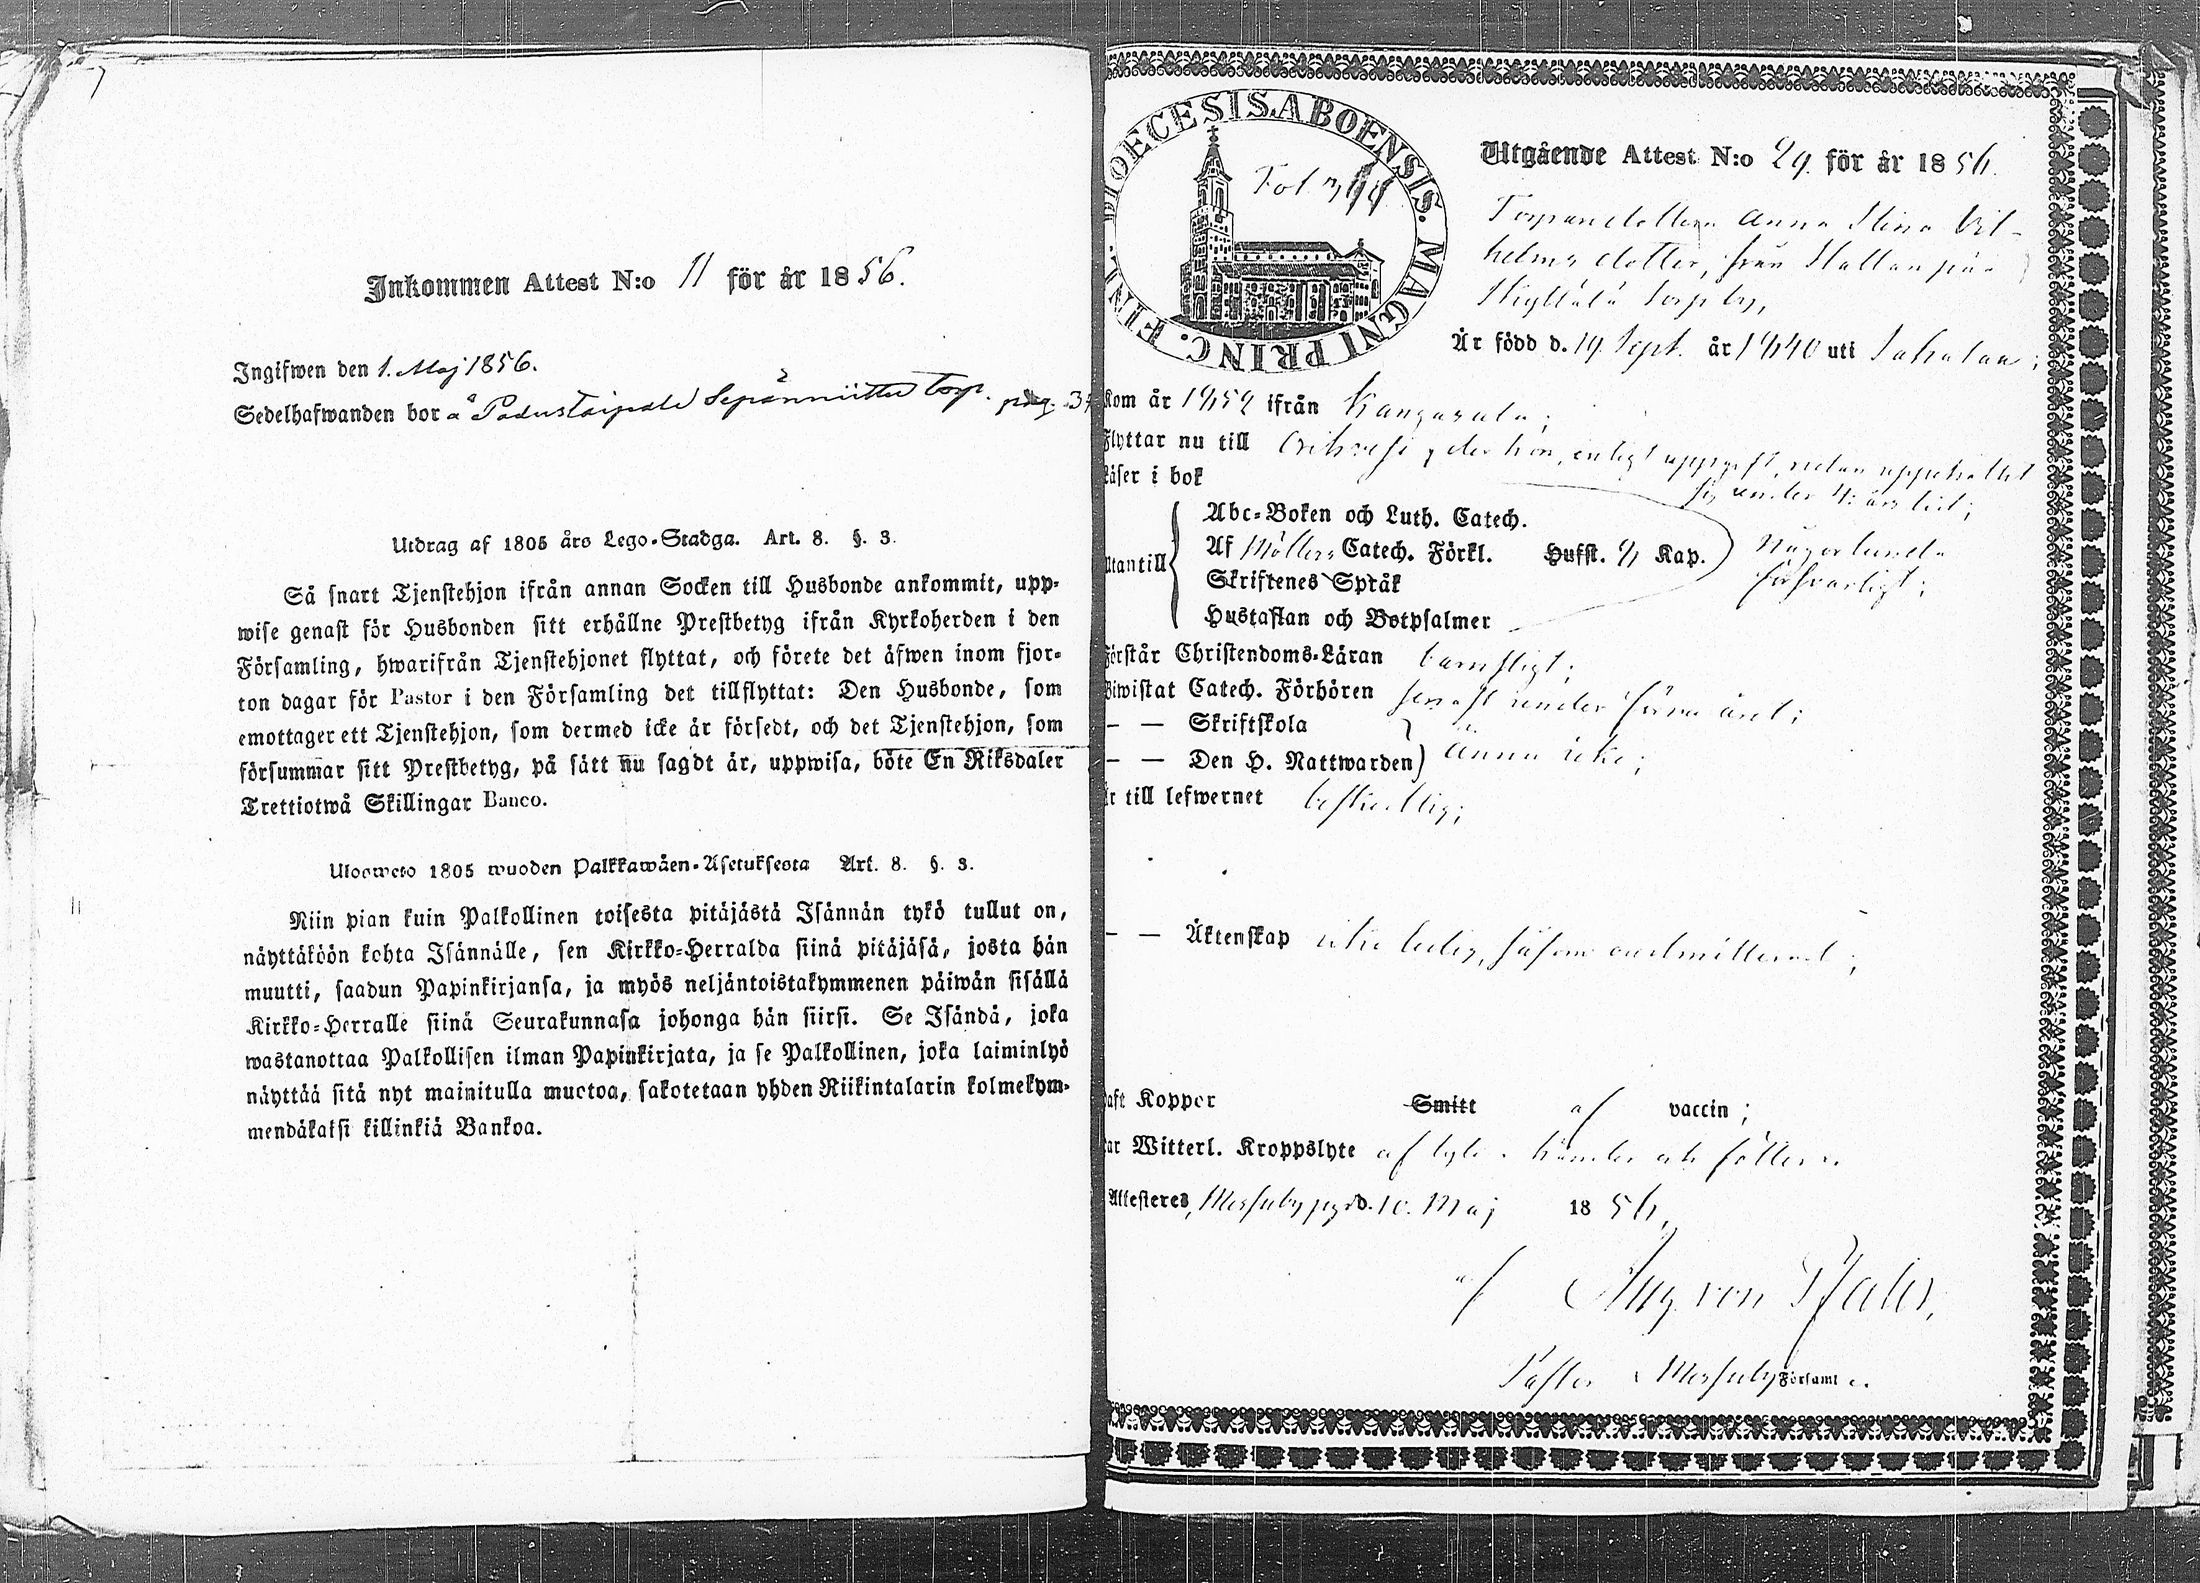 Inkommen Attest N:o 11 för år 1856.
Ingifwen den 1. Maj 1856.
Sedelhafwanden bor å Padustaipale Sepänniittu Torp. pag. 37
Utdrag af 1805 års Lego-Stadga. Art. 8. §. 3.
Så snart Tjenstehjon ifrån annan Socken till Husbonde ankommit, upp-
wise genast för Husbonden sitt erhållne Prestbetyg ifrån Kyrkoherden i den
Församling, hwarifrån Tjenstehjonet flyttat, och förete det äfwen inom fjor-
ton dagar för Pastor i den Församling det tillflyttat: Den Husbonde, som
emottager ett Tjenstehjon, som dermed icke är försedt, och det Tjenstehjon, som
försummar sitt Prestbetyg, på sätt nu sagdt är, uppwisa, böte En Riksdaler
Trettiotwå Skillingar Banco.
Ulosweto 1805 wuoden Palkkawäen-Asetuksesta Art. 8. §. 3.
Niin pian kuin Palkollinen toisesta pitäjästä Isännän tykö tullut on,
näyttäköön kohta Isännälle, sen Kirkko-Herralda siinä pitäjäsä, josta hän
muutti, saadun Papinkirjansa, ja myös neljäntoistakymmenen päiwän sisällä
Kirkko-Herralle siinä Seurakunnasa johonga hän siirsi. Se Isändä, joka
wastanottaa Palkollisen ilman Papinkirjata, ja se Palkollinen, joka laiminlyö
näyttää sitä nyt mainitulla muotoa, sakotetaan yhden Riikintalarin kolmekym-
mendäkaksi killinkiä Bankoa.
DIOECESIS. ABOENSIS. MAGNI PRINC. FINL.
Fol
Utgående Attest N:o 29. för år 1856.
Torparedottern Anna Stina Vil-
helms dotter, från Hallanpää
torp by,
Är född d. 19 Sept. år 1840 uti Sahalax;
Kom år 1852 ifrån Kangasala;
Flyttar nu till Orihvesi, der hon, enligt uppgift, redan uppehållit
sig under års tid;
Läser i bok
Abc-Boken och Luth. Catech.
Utantill Af Möllers Catech. Förkl. Hufst. 9 Kap. Någorlunda
försvarligt;
Skriftenes Språk
Hustaflan och Botpsalmer
Förstår Christendoms-Läran barnsligt;
Biwistat Catech. Förhören senast under förra året;
— — Skriftskola
— — Den H. Nattwarden) ännu icke;
Är till lefwernet beskedlig;
— — Äktenskap icke ledig, såsom oadmitterad;
Haft Koppor Smitt af vaccin;
Har Witterl. Kroppslyte af lyte i händer och fötter.
Attesteres, Messuby pgd d. 10. Maj 1856.
af Aug. von Pfaler,
Pastor i Messuby Församl.